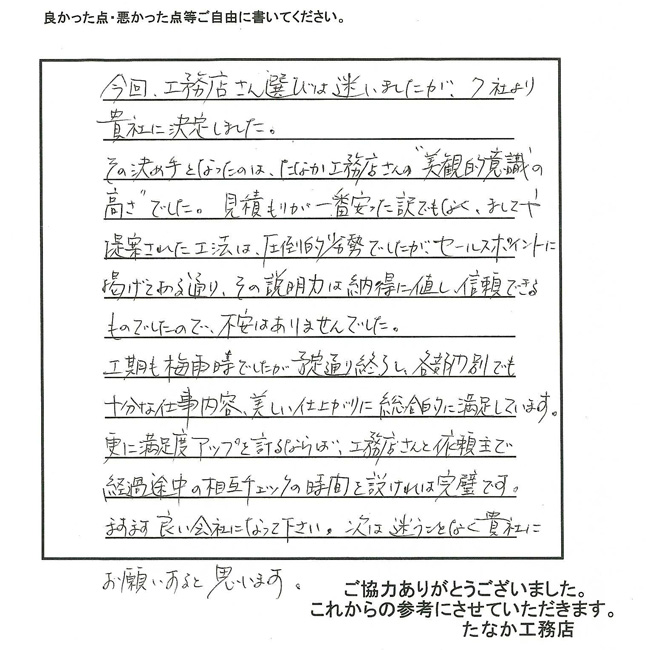 良かった点・悪かった点等ご自由に書いてください。
今回、工務店さん選びは迷いましたが、7社より
貴社に決定しました。
その決め手となったのは、たなか工務店さんの"美観的意識の
高さ"でした。見積もりが一番安った訳でもなく、ましてや
提案された工法は、圧倒的劣勢でしたが、セールスポイントに
掲げてある通り、その説明力は納得に値し、信頼できる
ものでしたので、不安はありませんでした。
工期も梅雨時でしたが予定通り終了し、各部門別でも
十分な仕事内容、美しい仕上がりに総合的に満足しています。
更に満足度アップを計るならば、工務店さんと依頼主で
経過途中の相互チェックの時間を設ければ完璧です。
ますます良い会社になって下さい。次は迷うことなく貴社に
お願いすると思います。
ご協力ありがとうございました。
これからの参考にさせていただきます。
たなか工務店